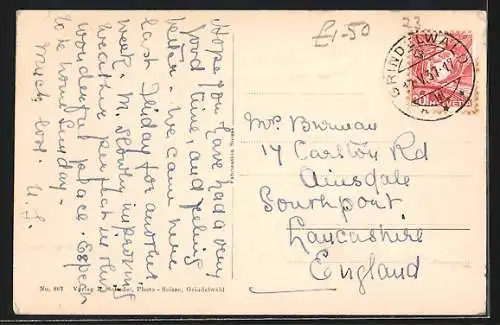 £1-50
23
GRINDELWALD
Hope you have had a very
good time, and feling
better. We came here
last Friday for another
week. M. Slowly improving
weather perfect in this
wonderful place. Expect
to be home Sunday -
Much love.
Mrs Burman
17 Carlton Rd
Ainsdale
Southport
Lancashire
England
No. 807 Verlag Photo - Suisse, Grindelwald